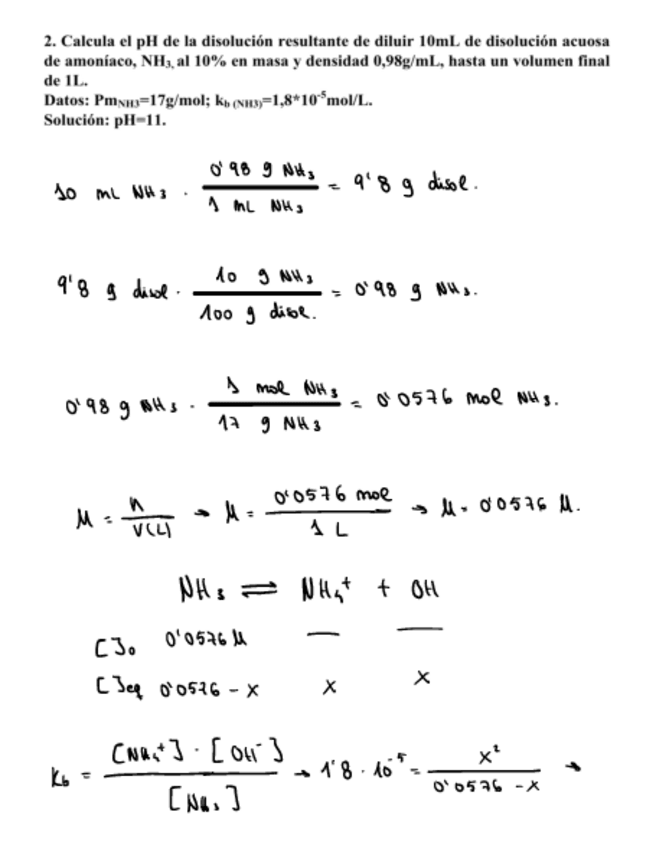 2. Calcula el pH de la disolución resultante de diluir 10mL de disolución acuosa
de amoníaco, NH₃, al 10% en masa y densidad 0,98g/mL, hasta un volumen final
de 1L.
Datos: Pm_NH3=17g/mol; k_b (NH3)=1,8*10⁻⁵mol/L.
Solución: pH=11.
10 mL NH₃ · 0'98 g NH₃ / 1 mL NH₃ = 9'8 g disol.
9'8 g disol · 10 g NH₃ / 100 g disol. = 0'98 g NH₃.
0'98 g NH₃ · 1 mol NH₃ / 17 g NH₃ = 0'0576 mol NH₃.
M = n / V(L) → M = 0'0576 mol / 1 L → M = 0'0576 M.
NH₃ ⇌ NH₄⁺ + OH
[ ]₀ 0'0576 M — —
[ ]eq 0'0576 - x x x
K_b = [NH₄⁺] · [OH⁻] / [NH₃] → 1'8 · 10⁻⁵ = x² / 0'0576 - x →